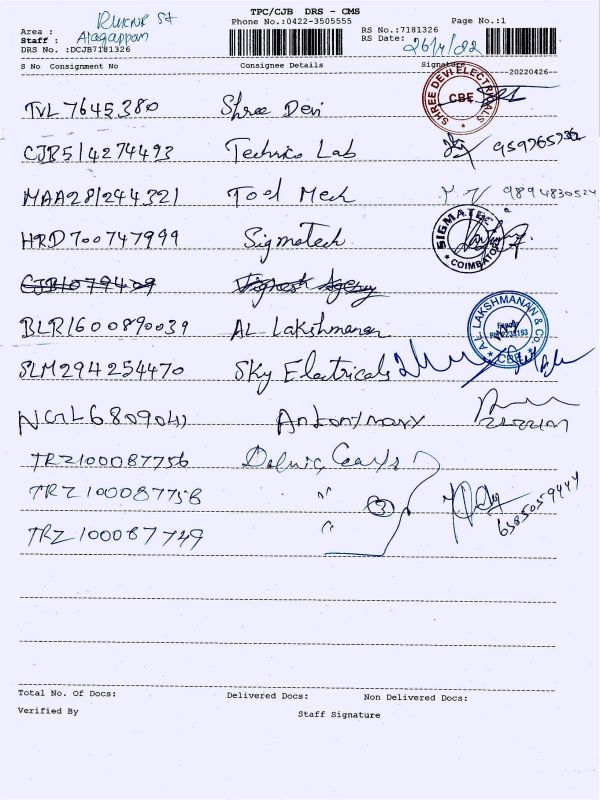 TPC/CJB DRS - CMS
Phone No.:0422-3505555 Page No.:1
Area :
Staff : Alagappan
RS No.:7181326
RS Date: 26/4/22
DRS No. :DCJB7181326
S No Consignment No Consignee Details Signature --20220426--
TVL 7645380 Shree Devi
SHREE DEVI ELECTRICALS CBE
CJB514274493 Technico Lab
MAA281244321 Tool Mech 9894830524
HRD700747999 Sigmatech
SIGMATECH COIMBATORE
CJB1079409 Vignesh Agency
BLR1600890039 AL Lakshmanan
A.L. LAKSHMANAN & Co. CBE
SLM294254470 Sky Electricals
NGL6809041 Antonymary
TRZ100087756
TRZ100087758 "
TRZ100087749 "
3
6385059444
Total No. Of Docs: Delivered Docs: Non Delivered Docs:
Verified By Staff Signature